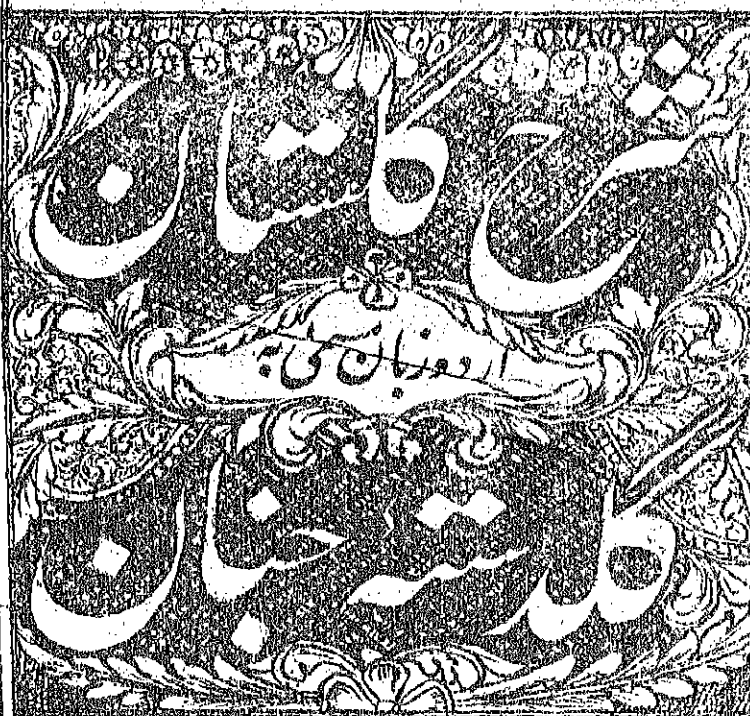 شرح گلستان
اردو زبان مسمی بہ
گلدستہ جنان